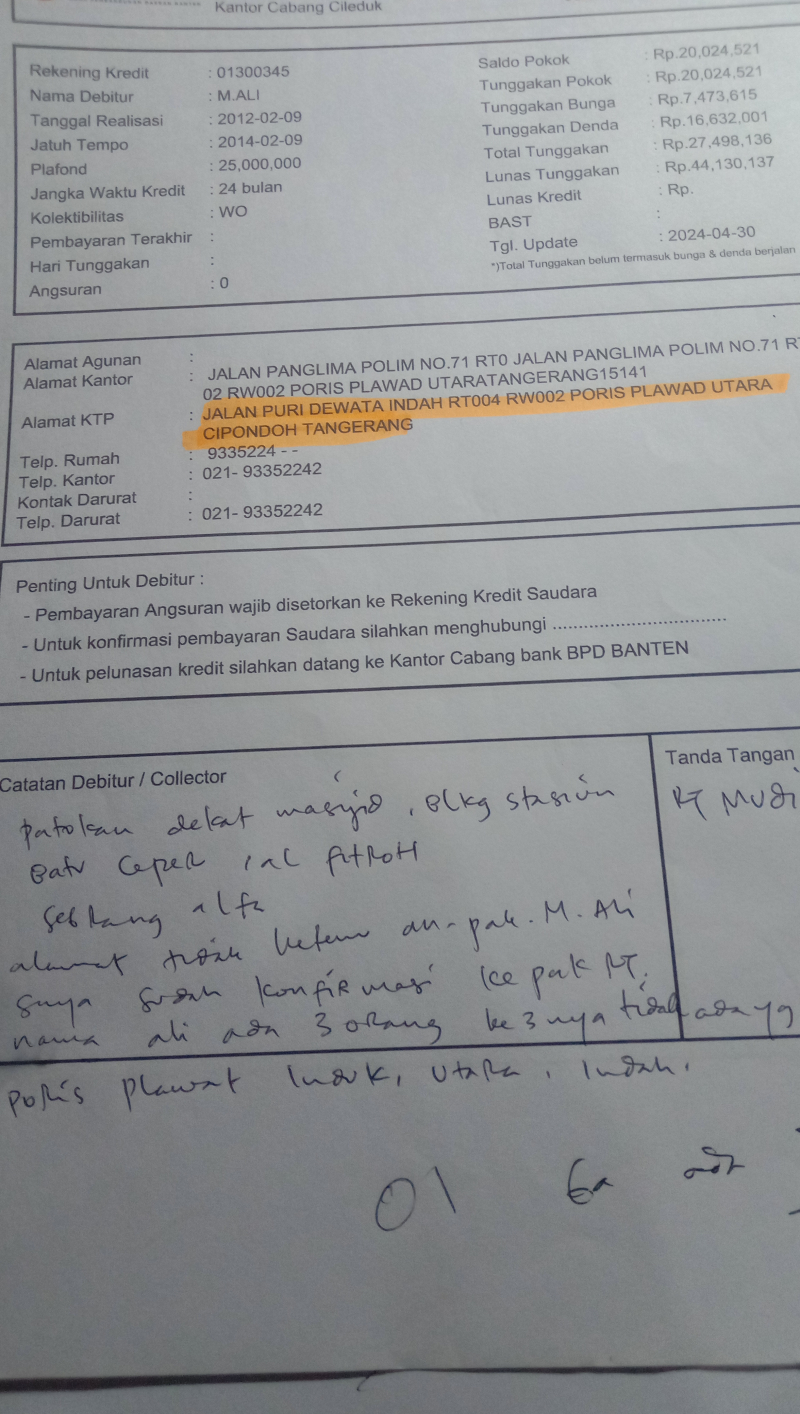 Kantor Cabang Cileduk
Rekening Kredit : 01300345
Nama Debitur : M.ALI
Tanggal Realisasi : 2012-02-09
Jatuh Tempo : 2014-02-09
Plafond : 25,000,000
Jangka Waktu Kredit : 24 bulan
Kolektibilitas : WO
Pembayaran Terakhir :
Hari Tunggakan :
Angsuran : 0
Saldo Pokok : Rp.20,024,521
Tunggakan Pokok : Rp.20,024,521
Tunggakan Bunga : Rp.7,473,615
Tunggakan Denda : Rp.16,632,001
Total Tunggakan : Rp.27,498,136
Lunas Tunggakan : Rp.44,130,137
Lunas Kredit : Rp.
BAST :
Tgl. Update : 2024-04-30
*)Total Tunggakan belum termasuk bunga & denda berjalan
Alamat Agunan :
Alamat Kantor : JALAN PANGLIMA POLIM NO.71 RT0 JALAN PANGLIMA POLIM NO.71 R
02 RW002 PORIS PLAWAD UTARATANGERANG15141
Alamat KTP : JALAN PURI DEWATA INDAH RT004 RW002 PORIS PLAWAD UTARA
CIPONDOH TANGERANG
Telp. Rumah : 9335224 - -
Telp. Kantor : 021- 93352242
Kontak Darurat :
Telp. Darurat : 021- 93352242
Penting Untuk Debitur :
- Pembayaran Angsuran wajib disetorkan ke Rekening Kredit Saudara
- Untuk konfirmasi pembayaran Saudara silahkan menghubungi .................................
- Untuk pelunasan kredit silahkan datang ke Kantor Cabang bank BPD BANTEN
Catatan Debitur / Collector
Tanda Tangan
patokan dekat masjid, Blkg stasiun
Batu Ceper, al FitRoH
SebRang alfa
alamat tidak ketemu an-pak. M. Ali
Saya sudah konfirmasi ke pak RT.
nama ali ada 3 orang ke 3 nya tidak ada yg
RT MUDi
poRis plawat Induk, UtaRa, Indah.
01 6a